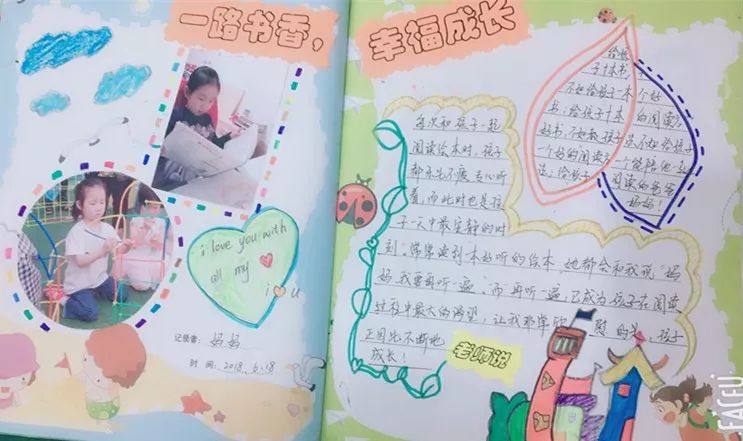 一路书香，
幸福成长
i love you with
all my
i u
记录者：妈妈
时间：2018.6.18
每次和孩子一起
阅读绘本时，孩子
都乐此不疲专心听
着，而此时也是孩
子一天中最安静的时
刻。常常读到本好听的绘本，她都会和我说"妈
妈，我要再听一遍"，而再听一遍，已成为孩子在阅读
过程中最大的渴望，让我非常欣慰的是，孩子
正因此不断地
成长！
给孩
子十本书，
不如给孩子一本个好
书；给孩子十本的阅读方
好书，不如教孩子法不如给孩子
一个好的阅读方一个能陪他一起
法；给孩子阅读的爸爸
妈妈！
老师说
FACEU